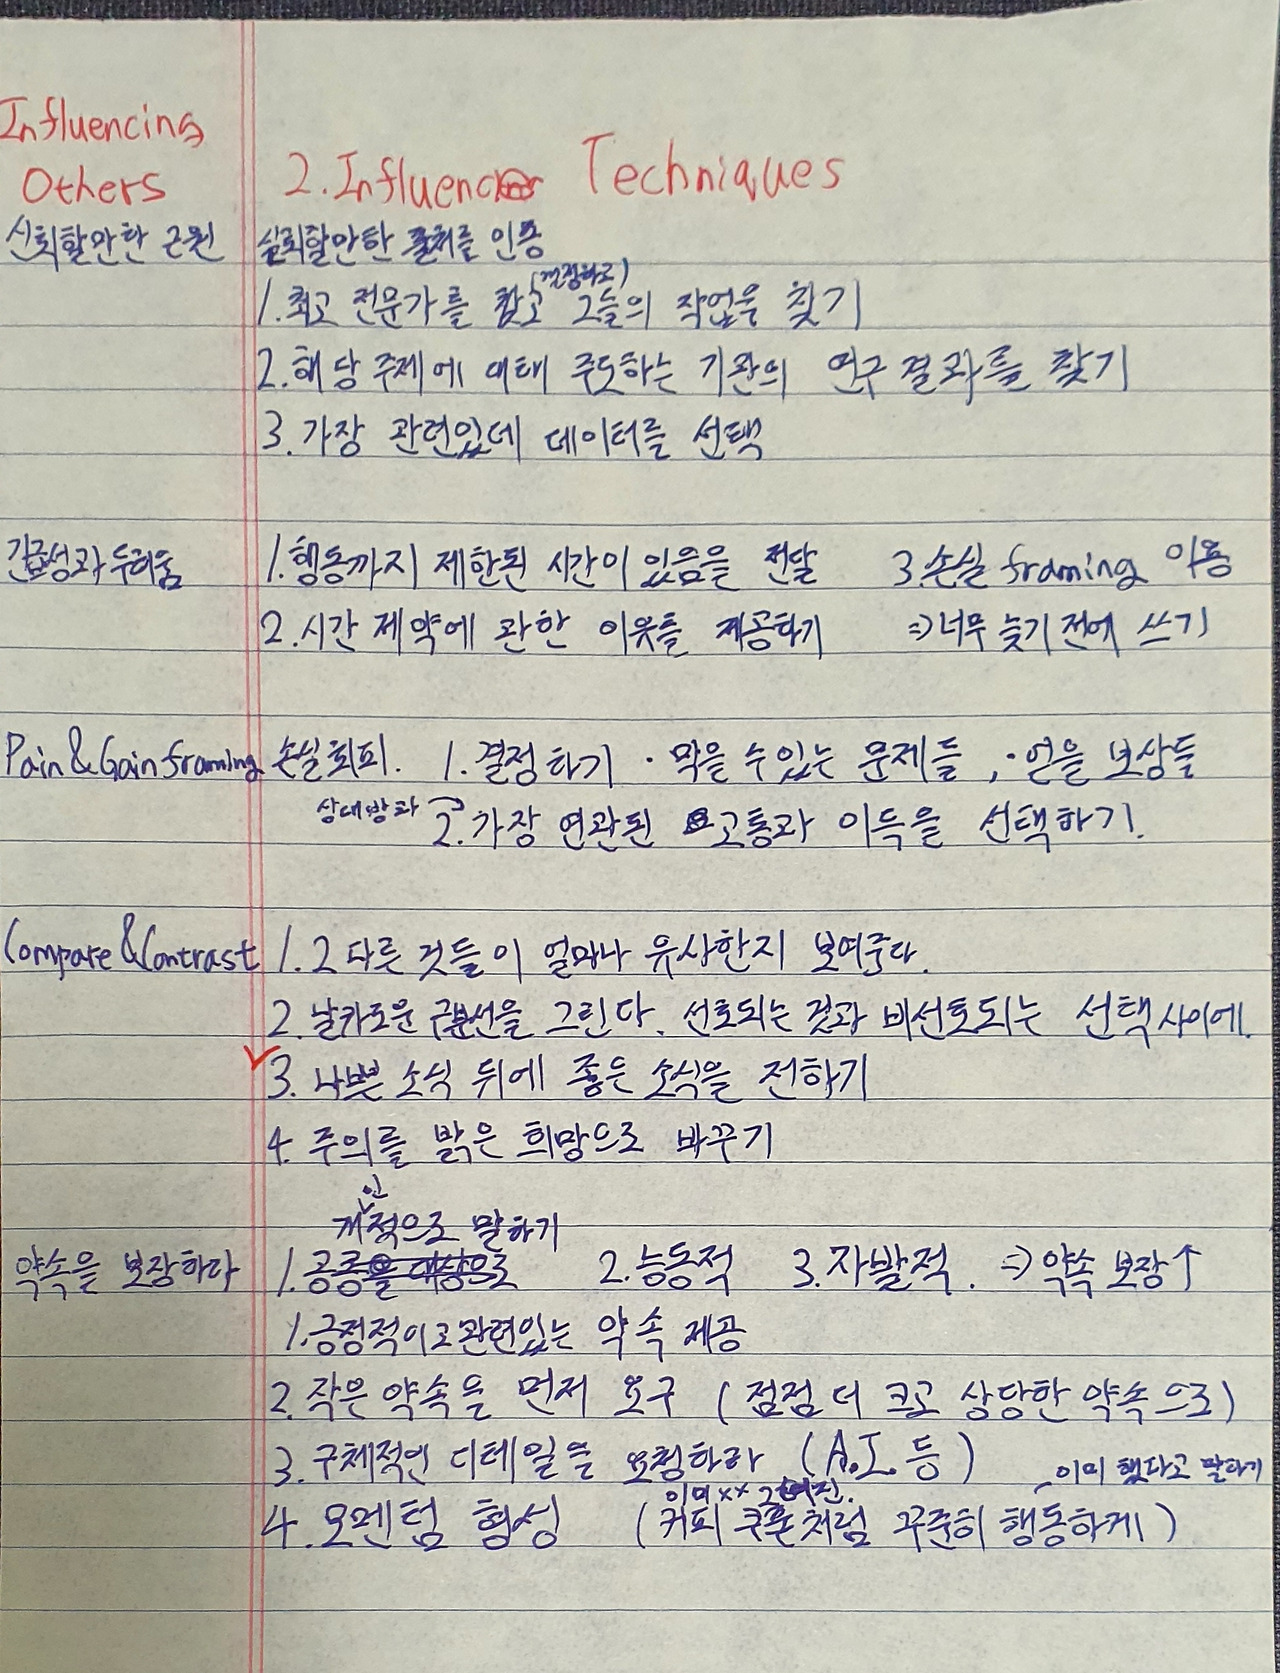 Influencing
Others
2. Influence Techniques
신뢰할만한 근원 신뢰할만한 출처를 인용
(결정하고)
1. 최고 전문가를 참고 그들의 작업을 찾기
2. 해당 주제에 대해 주도하는 기관의 연구 결과를 찾기
3. 가장 관련있데 데이터를 선택
긴급성과 두려움 1. 행동까지 제한된 시간이 있음을 전달 3. 손실 framing 이용
2. 시간 제약에 관한 이유를 제공하기 => 너무 늦기 전에 쓰기
Pain & Gain framing 손실회피. 1. 결정하기 · 막을 수 있는 문제들, · 얻을 보상들
상대방과
2. 가장 연관된 고통과 이득을 선택하기.
Compare & Contrast 1. 2 다른 것들이 얼마나 유사한지 보여준다.
2. 날카로운 구분선을 그린다. 선호되는 것과 비선호되는 선택 사이에.
3. 나쁜 소식 뒤에 좋은 소식을 전하기
4. 주의를 밝은 희망으로 바꾸기
인
개적으로 말하기
약속을 보장하다 1. 공중을 대상으로 2. 능동적 3. 자발적. => 약속 보장↑
1. 긍정적이고 관련있는 약속 제공
2. 작은 약속을 먼저 요구 (점점 더 크고 상당한 약속으로)
3. 구체적인 디테일을 요청하라 (A.I. 등)
이미 했다고 말하기
이미 xx
4. 모멘텀 형성 (커피 쿠폰처럼 꾸준히 행동하게)